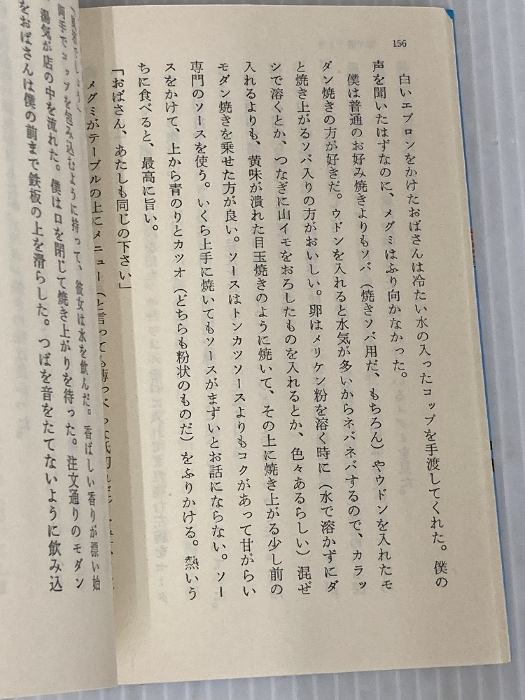 156
白いエプロンをかけたおばさんは冷たい水の入ったコップを手渡してくれた。僕の
声を聞いたはずなのに、メグミはふり向かなかった。
僕は普通のお好み焼きよりもソバ（焼きソバ用だ、もちろん）やウドンを入れたモ
ダン焼きの方が好きだ。ウドンを入れると水気が多いからネバネバするので、カラッ
と焼き上がるソバ入りの方がおいしい。卵はメリケン粉を溶く時に（水で溶かずにダ
シで溶くとか、つなぎに山イモをおろしたものを入れるとか、色々あるらしい）混ぜ
入れるよりも、黄味が潰れた目玉焼きのように焼いて、その上に焼き上がる少し前の
モダン焼きを乗せた方が良い。ソースはトンカツソースよりもコクがあって甘がらい
専門のソースを使う。いくら上手に焼いてもソースがまずいとお話にならない。ソー
スをかけて、上から青のりとカツオ（どちらも粉状のものだ）をふりかける。熱いう
ちに食べると、最高に旨い。
「おばさん、あたしも同じの下さい」
メグミがテーブルの上にメニュー（と言っても薄っ
両手でコップを包み込むように持って、彼女は水を飲んだ。香ばしい香りが漂い始
湯気が店の中を流れた。僕は口を閉じて焼き上がりを待った。注文通りのモダン
をおばさんは僕の前まで鉄板の上を滑らした。つばを音をたてないように飲み込